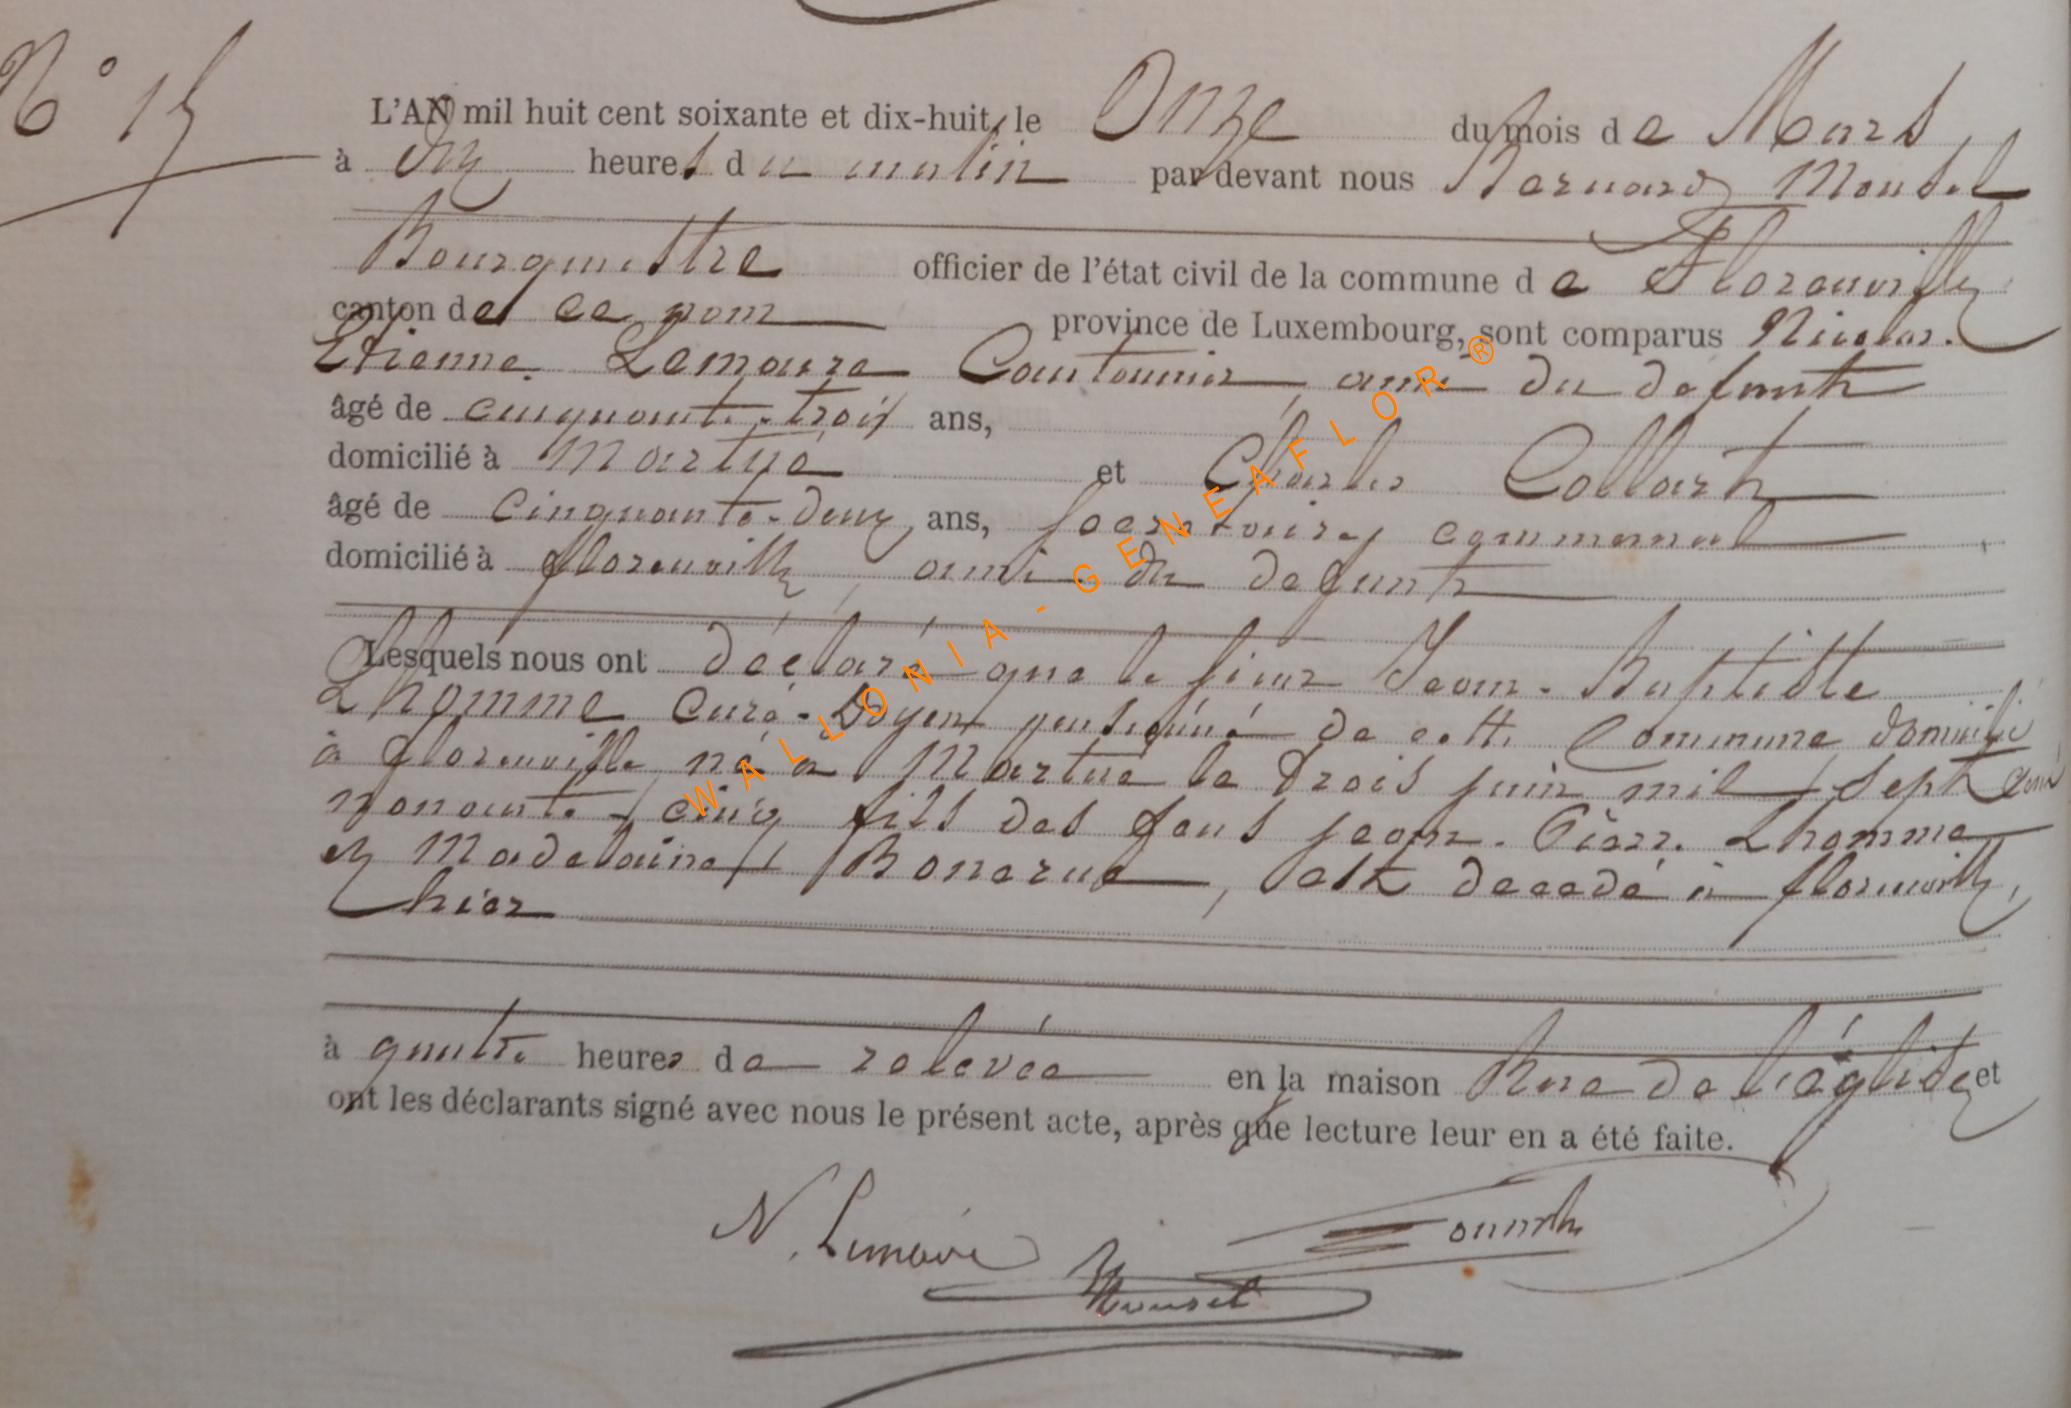 N° 15
L'AN mil huit cent soixante et dix-huit, le Onze du mois de Mars
à dix heures du matin par devant nous Bernard Mousel
Bourgmestre officier de l'état civil de la commune de Florenville
canton de ce nom province de Luxembourg, sont comparus Nicolas
Etienne Lemoire Cantonnier, ami du défunt
âgé de cinquante-trois ans,
domicilié à Martué et Charles Collart
âgé de cinquante-deux ans, secrétaire communal
domicilié à florenville, ami du défunt
Lesquels nous ont déclaré que le sieur Jean-Baptiste
Lhomme curé-Doyen pensionné de cette Commune domicilié
à florenville né à Martué le trois juin mil sept cent
nonante-cinq fils des feus jean-Pierre Lhomme
et Madelaine Bonerue, est décédé à florenville,
hier
à quatre heures de relevée en la maison Rue de l'église et
ont les déclarants signé avec nous le présent acte, après que lecture leur en a été faite.
N. Lemoire
Mousel
WALLONIA-GENEAFLOR®